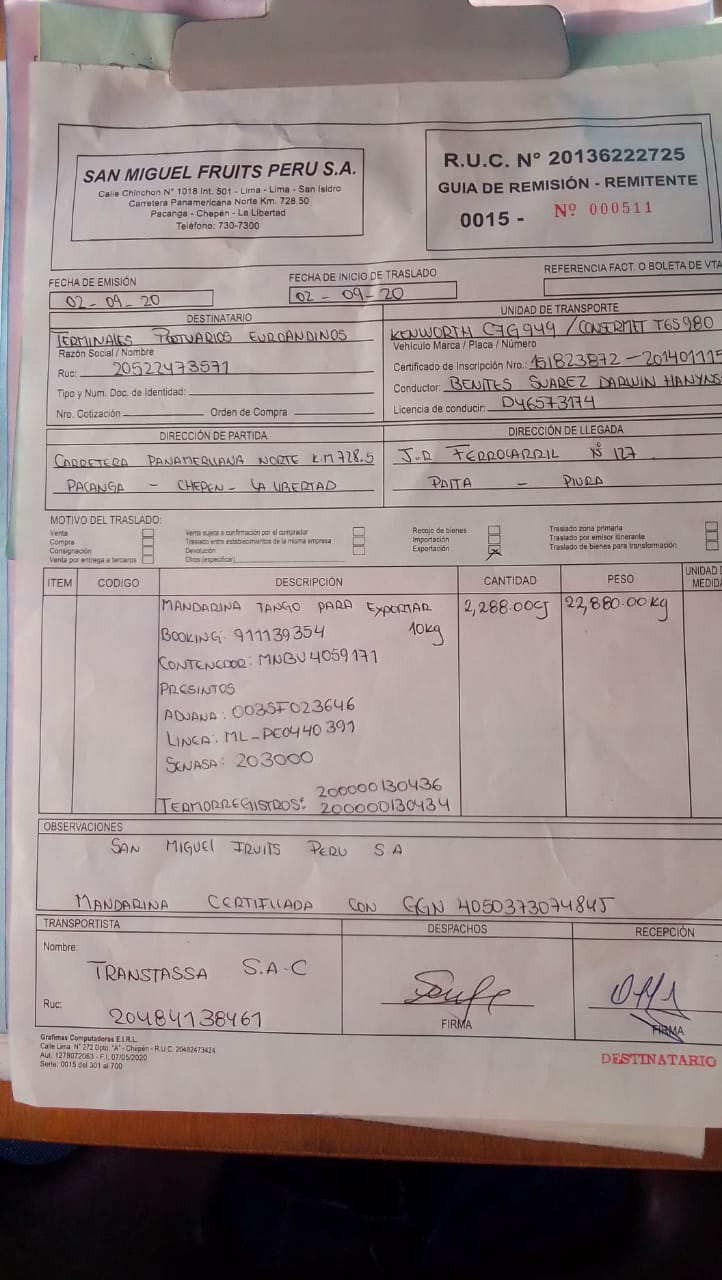 SAN MIGUEL FRUITS PERU S.A.
Calle Chinchon N° 1018 Int. 501 - Lima - Lima - San Isidro
Carretera Panamericana Norte Km. 728.50
Pacanga - Chepén - La Libertad
Teléfono: 730-7300
R.U.C. N° 20136222725
GUIA DE REMISIÓN - REMITENTE
0015 - Nº 000511
FECHA DE EMISIÓN
02-09-20
FECHA DE INICIO DE TRASLADO
02-09-20
REFERENCIA FACT. O BOLETA DE VTA
DESTINATARIO
TERMINALES PORTUARIOS EUROANDINOS
Razón Social / Nombre
Ruc: 20522473571
Tipo y Num. Doc. de Identidad:
Nro. Cotización Orden de Compra
UNIDAD DE TRANSPORTE
KENWORTH C7G949 / CONSERMET T6S980
Vehículo Marca / Placa / Número
Certificado de Inscripción Nro.: 151823872 - 201401115
Conductor: BENITES SUAREZ DARWIN HANYNS
Licencia de conducir: D46573174
DIRECCIÓN DE PARTIDA
CARRETERA PANAMERICANA NORTE KM 728.5
PACANGA - CHEPEN - LA LIBERTAD
DIRECCIÓN DE LLEGADA
J.R FERROCARRIL Nº 127
PAITA - PIURA
MOTIVO DEL TRASLADO:
Venta
Compra
Consignación
Venta por entrega a terceros
Venta sujeta a confirmación por el comprador
Traslado entre establecimientos de la misma empresa
Devolución
Otros (especificar)
Recojo de bienes
Importación
Exportación
Traslado zona primaria
Traslado por emisor itinerante
Traslado de bienes para transformación
ITEM CODIGO DESCRIPCIÓN CANTIDAD PESO UNIDAD D
MEDIDA
MANDARINA TANGO PARA EXPORTAR 2,288.00CJ 22,880.00Kg
BOOKING: 911139354 10kg
CONTENEDOR: MNBU4059171
PRESINTOS
ADUANA: 003SF023646
LINEA: ML-PE0440391
SENASA: 203000
200000130436
TERMORREGISTROS: 200000130434
OBSERVACIONES
SAN MIGUEL FRUITS PERU S A
MANDARINA CERTIFICADA CON GGN 4050373074845
TRANSPORTISTA
Nombre: TRANSTASSA S.A.C
Ruc: 20484138461
DESPACHOS
FIRMA
RECEPCIÓN
FIRMA
Grafimas Computadoras E.I.R.L.
Calle Lima N° 272 Dpto. "A" - Chepén - R.U.C. 20482473424
Aut. 1278072063 - F.I. 07/05/2020
Serie: 0015 del 301 al 700
DESTINATARIO